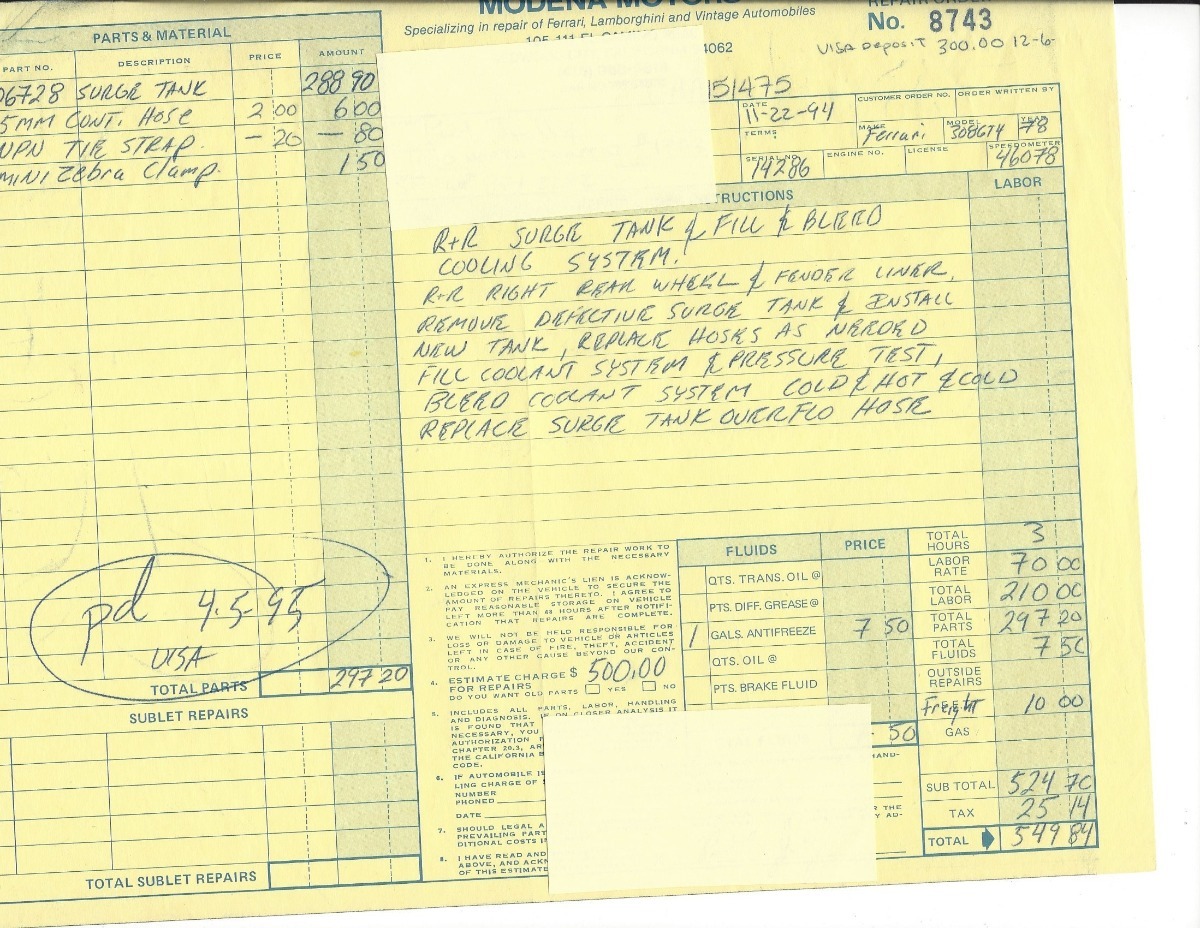 MODENA MOTORS
Specializing in repair of Ferrari, Lamborghini and Vintage Automobiles
4062
REPAIR ORDER
No. 8743
VISA Deposit 300.00 12-6-
PARTS & MATERIAL
PART NO. DESCRIPTION PRICE AMOUNT
06728 SURGE TANK 288 90
5MM CONT. Hose 2 00 6 00
TIE STRAP. - 20 - 80
MINI Zebra Clamp. 1 50
151475
DATE 11-22-94
CUSTOMER ORDER NO. ORDER WRITTEN BY
TERMS
MAKE Ferrari MODEL 308GT4 YEAR 78
SERIAL NO. 14286 ENGINE NO. LICENSE SPEEDOMETER 46078
TRUCTIONS LABOR
R+R SURGE TANK & FILL & BLEED
COOLING SYSTEM.
R+R RIGHT REAR WHEEL & FENDER LINER,
REMOVE DEFECTIVE SURGE TANK & INSTALL
NEW TANK, REPLACE HOSES AS NEEDED
FILL COOLANT SYSTEM & PRESSURE TEST,
BLEED COOLANT SYSTEM COLD & HOT & COLD
REPLACE SURGE TANK OVERFLO HOSE
pd 4-5-95
VISA
TOTAL PARTS 297 20
SUBLET REPAIRS
TOTAL SUBLET REPAIRS
1. I HEREBY AUTHORIZE THE REPAIR WORK TO
BE DONE ALONG WITH THE NECESSARY
MATERIALS.
2. AN EXPRESS MECHANIC'S LIEN IS ACKNOW-
LEDGED ON THE VEHICLE TO SECURE THE
AMOUNT OF REPAIRS THERETO. I AGREE TO
PAY REASONABLE STORAGE ON VEHICLE
LEFT MORE THAN 48 HOURS AFTER NOTIFI-
CATION THAT REPAIRS ARE COMPLETE.
3. WE WILL NOT BE HELD RESPONSIBLE FOR
LOSS OR DAMAGE TO VEHICLE OR ARTICLES
LEFT IN CASE OF FIRE, THEFT, ACCIDENT
OR ANY OTHER CAUSE BEYOND OUR CON-
TROL.
4. ESTIMATE CHARGE $ 500.00
FOR REPAIRS
DO YOU WANT OLD PARTS YES NO
5. INCLUDES ALL PARTS, LABOR, HANDLING
AND DIAGNOSIS. IF ON CLOSER ANALYSIS IT
IS FOUND THAT
NECESSARY, YOU
AUTHORIZATION
CHAPTER 20.3, AR
THE CALIFORNIA B
CODE.
6. IF AUTOMOBILE IS
LING CHARGE OF
NUMBER
PHONED
DATE
7. SHOULD LEGAL A
PREVAILING PART
DITIONAL COSTS I
8. I HAVE READ AND
ABOVE, AND ACKN
OF THIS ESTIMATE
FLUIDS PRICE
QTS. TRANS. OIL @
PTS. DIFF. GREASE @
1 GALS. ANTIFREEZE 7 50
QTS. OIL @
PTS. BRAKE FLUID
50
HAND-
R THE
Y AD-
TOTAL HOURS 3
LABOR RATE 70 00
TOTAL LABOR 210 00
TOTAL PARTS 297 20
TOTAL FLUIDS 7 50
OUTSIDE REPAIRS
Freight 10 00
GAS
SUB TOTAL 524 70
TAX 25 14
TOTAL 549 84